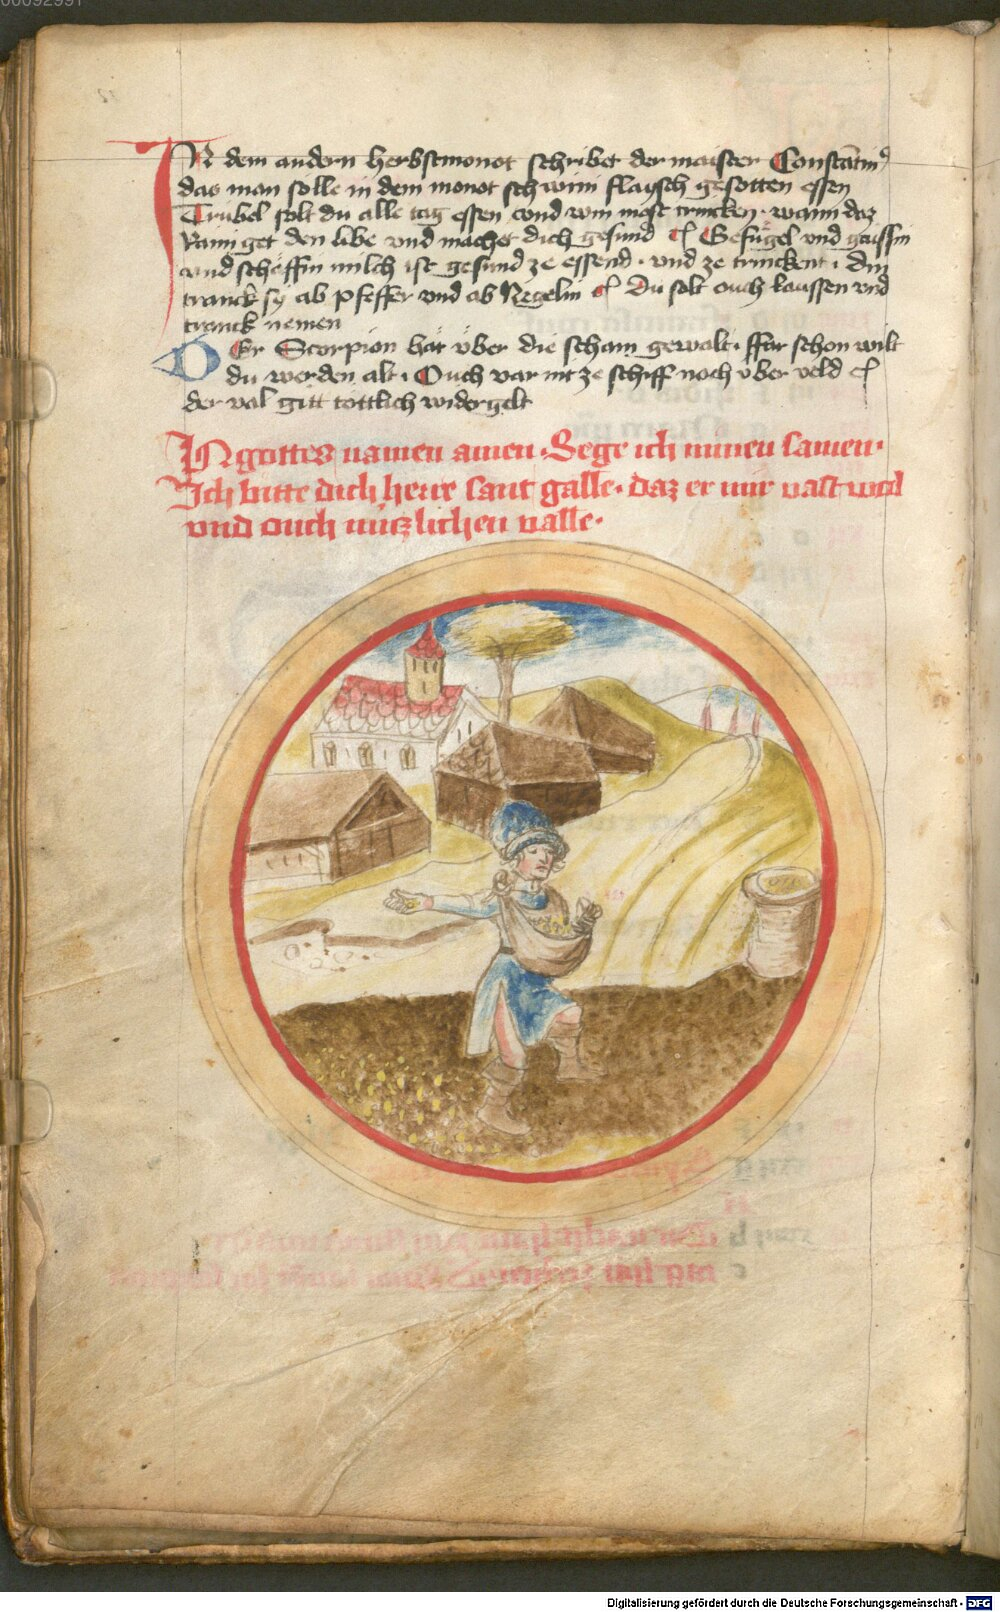 00092991
IN dem andern herbstmonot schribet der maister Constātin9
das man solle in dem monot schwini flaysch gesotten essen
Trübel solt du alle tag essen vnd win most trincken · wann daz
Rainiget den libe vnd machet dich gesund ¶ Gefügel vnd gaissin
vnd scháffin milch ist gesund ze essend · vnd ze trinckent · Din
tranck sÿ ab pfeffer vnd ab Negelin ¶ Du solt ouch laussen vnd
tranck nemen
DEr Scorpion hät über die scham gewalt · ffar schon wilt
du werden alt · Ouch var nit ze schiff noch vber veld ¶
der val gitt tottlich widergelt
IN gottes namen amen · Sege ich minen samen ·
Ich bitte dich herre sant galle · daz er mir vast wol
vnd ouch nützlichen valle ·
Digitalisierung gefördert durch die Deutsche Forschungsgemeinschaft - DFG